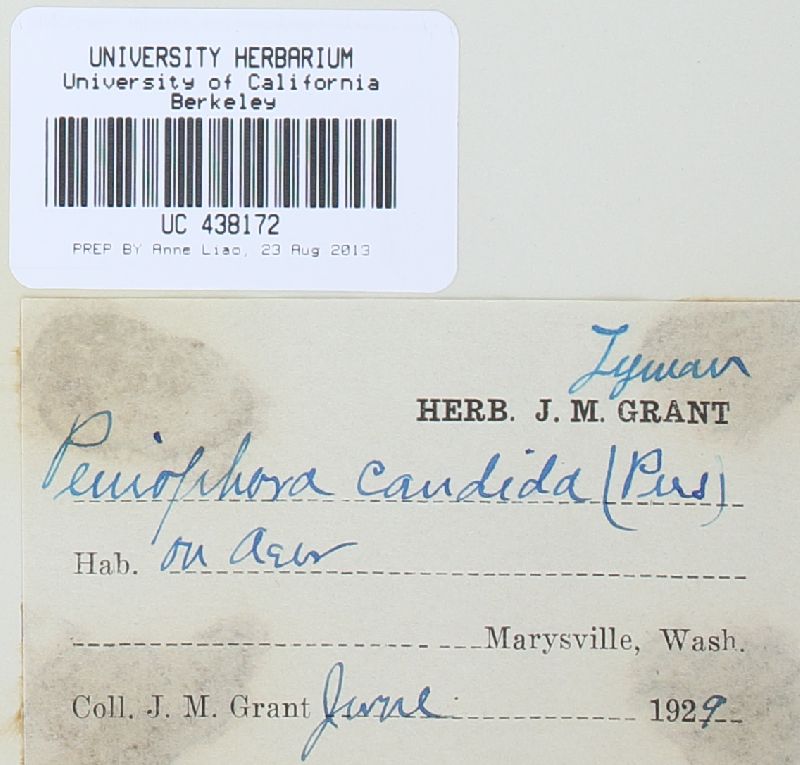 UNIVERSITY HERBARIUM
University of California
Berkeley
UC 438172
PREP BY Anne Liao, 23 Aug 2013
Lyman
HERB. J. M. GRANT
Peniophora candida (Pers)
Hab. on Acer
Marysville, Wash.
Coll. J. M. Grant June 1929